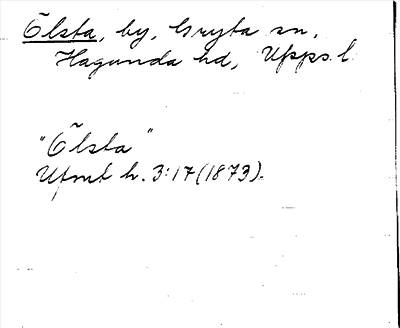 Ölsta, by, Gryta sn,
Hagunda hd, Upps. l.
"Ölsta"
Ufmt h. 3:17 (1873).